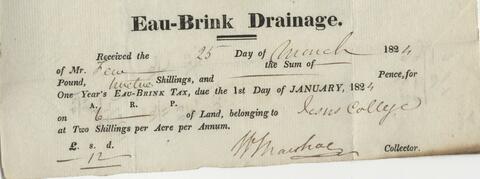 Eau-Brink Drainage.
Received the 25 Day of March 1824
of Mr. Few the Sum of
Pound, twelve Shillings, and Pence, for
One Year's EAU-BRINK TAX, due the 1st Day of JANUARY, 1824
A. R. P.
on 6 of Land, belonging to Jesus College
at Two Shillings per Acre per Annum.
£. s. d.
12 Wm Marshall Collector.